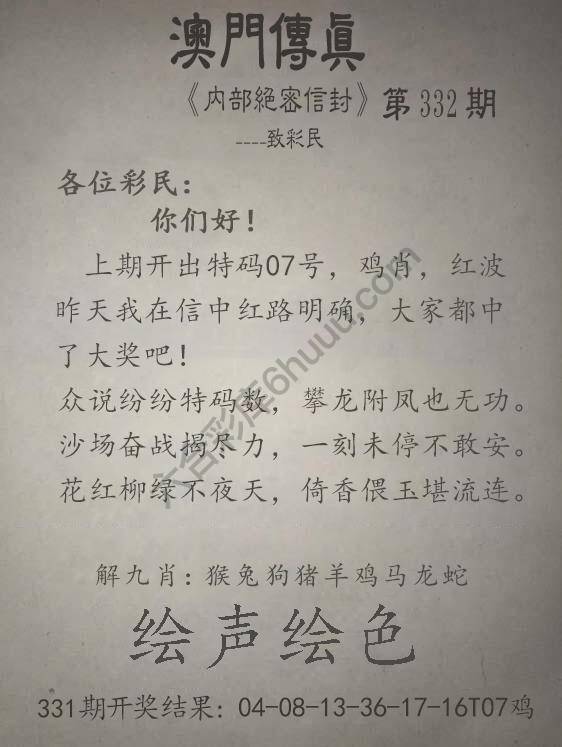 澳門傳眞
《内部絕密信封》第332期
----致彩民
各位彩民：
你们好！
上期开出特码07号，鸡肖，红波
昨天我在信中红路明确，大家都中
了大奖吧！
众说纷纷特码数，攀龙附凤也无功。
沙场奋战揭尽力，一刻未停不敢安。
花红柳绿不夜天，倚香偎玉堪流连。
六合彩库6huuu.com
解九肖：猴兔狗猪羊鸡马龙蛇
绘声绘色
331期开奖结果：04-08-13-36-17-16T07鸡